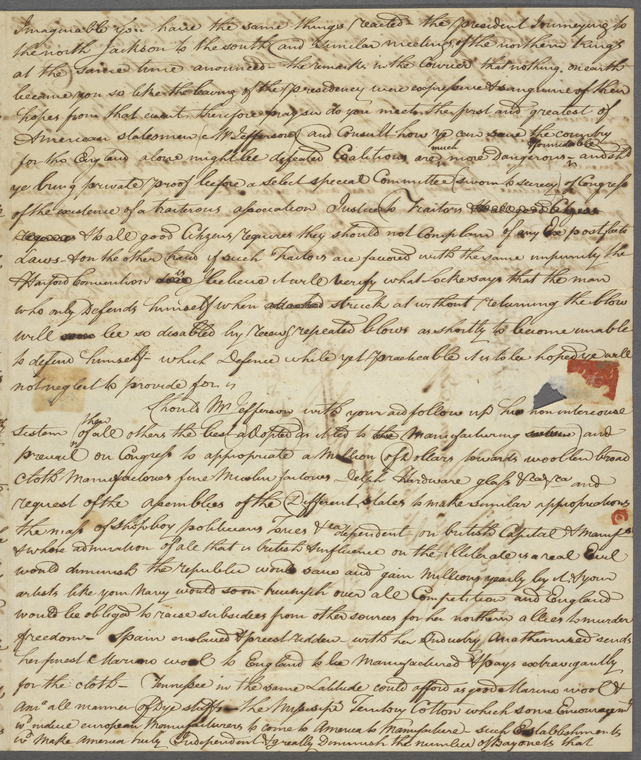 Imaginable you have the same things reacted - the President Journeying to
the north Jackson to the south (and similar meetings of the northern kings
at the same time anounced - the remark in the Courier that nothing on earth
became you so like the leaving of the Presidency were expressive & sanguine of their
hopes from that event. therefore pray sir do you meet the first and greatest of
American statesmen (Mr Jefferson) and Consult how ye can save the country
for tho England alone might be defeated Coalitions are much more dangerous formidable - and shd
ye bring private proof before a select special Committee (sworn to secrecy of Congress
of the existence of a traiterous association Justice to traitors
& to all good Citizens requires they should not Complain of any Ex post facto
Laws - & on the other hand if such Traitors are favored with the same impunity the
Hartford Convention is believe it will verify what Locke says that the man
who only Defends himself when struck at without returning the blow
will be so disabled by repeated blows as shortly to become unable
to defend himself - which Defence while yet practicable it is to be hoped ye will
not neglect to provide for
Should Mr Jefferson with your aid follow up his non intercourse
sistem then of all others the best adopted as it led to Manufacturing and
prevail on Congress to appropriate a Million of Dollars towards woollen broad
cloth Manufactories fine Muslin factories - Delph Hardware glass &ca &ca and
request of the Assemblies of the Different states to make similar appropriations
the mass of shopboy politicians Tories &ca dependent on British Capital & Manufrs
& whose admiration of all that is british & influence on the illiterate is a real Evil
would diminish the republic would save and gain Millions yearly by it & your
artists like your Navy would soon triumph over all Competition and England
would be obliged to raise subsidies from other sources for her northern allies to murder
freedom - Spain enslaved & priest ridden - with her Industry Anathemised sends
her finest Marino wool to England to be Manufactured & pays extravigantly
for the cloth - Tennessee in the same Latitude could afford as good Marino wool &
all manner of Dye stuffs - the Missisipi Territory Cotton which some Encouragemt
wd induce european Manufacturers to come to America to Manufacture - such Establishments
wd Make America truly Independent & greatly Diminish the number of Bayonets that